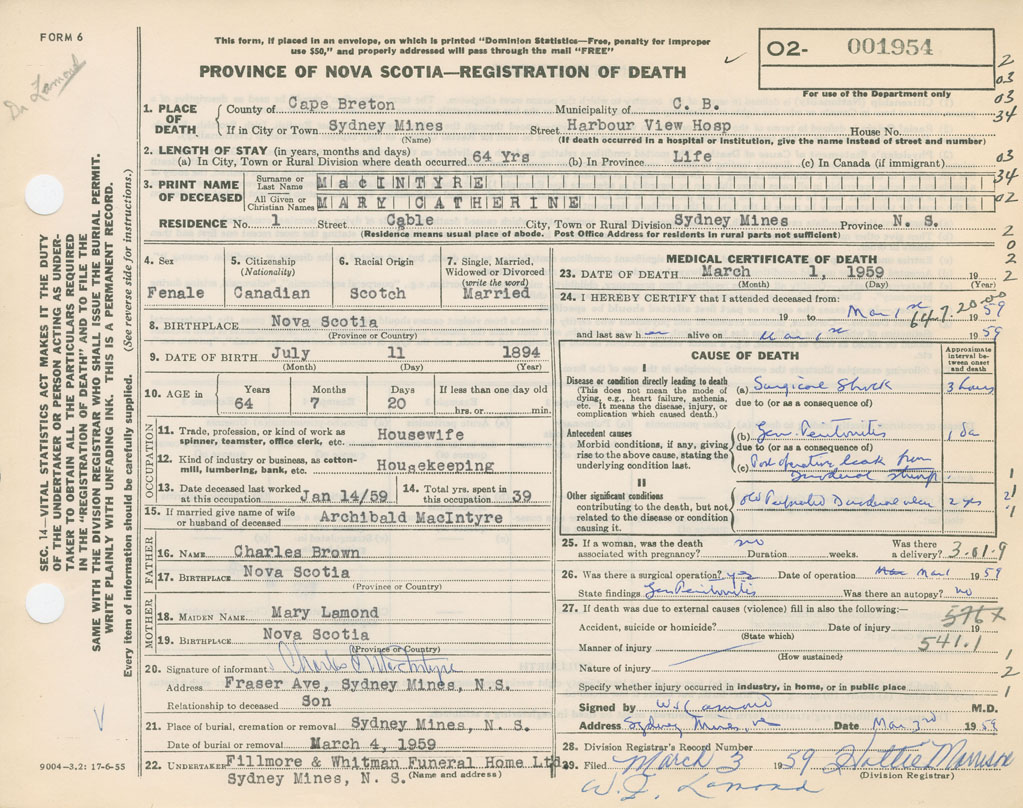 FORM 6
This form, if placed in an envelope, on which is printed "Dominion Statistics—Free, penalty for improper
use $50," and properly addressed will pass through the mail "FREE"
PROVINCE OF NOVA SCOTIA—REGISTRATION OF DEATH
O2- 001954
For use of the Department only
Dr. Lamond
SEC. 14—VITAL STATISTICS ACT MAKES IT THE DUTY
OF THE UNDERTAKER OR PERSON ACTING AS UNDER-
TAKER TO OBTAIN ALL THE PARTICULARS REQUIRED
IN THE "REGISTRATION OF DEATH" AND TO FILE THE
SAME WITH THE DIVISION REGISTRAR WHO SHALL ISSUE THE BURIAL PERMIT.
WRITE PLAINLY WITH UNFADING INK. THIS IS A PERMANENT RECORD.
Every item of information should be carefully supplied. (See reverse side for instructions.)
1. PLACE OF DEATH County of Cape Breton Municipality of C. B.
If in City or Town Sydney Mines Street Harbour View Hosp House No.
(Name) (If death occurred in a hospital or institution, give the name instead of street and number)
2. LENGTH OF STAY (in years, months and days)
(a) In City, Town or Rural Division where death occurred 64 Yrs (b) In Province Life (c) In Canada (if immigrant)
3. PRINT NAME OF DECEASED
Surname or Last Name MacINTYRE
All Given or Christian Names MARY CATHERINE
RESIDENCE No. 1 Street Cable City, Town or Rural Division Sydney Mines Province N. S.
(Residence means usual place of abode. Post Office Address for residents in rural parts not sufficient)
2
03
03
34
03
34
02
2
0
2
2
4. Sex 5. Citizenship (Nationality) 6. Racial Origin 7. Single, Married, Widowed or Divorced (write the word)
Fenale Canadian Scotch Married
8. BIRTHPLACE Nova Scotia
(Province or Country)
9. DATE OF BIRTH July 11 1894
(Month) (Day) (Year)
10. AGE in Years Months Days If less than one day old
64 7 20 hrs. or min.
OCCUPATION
11. Trade, profession or kind of work as spinner, teamster, office clerk, etc. Housewife
12. Kind of industry or business, as cotton-mill, lumbering, bank, etc. Housekeeping
13. Date deceased last worked at this occupation Jan 14/59 14. Total yrs. spent in this occupation 39
15. If married give name of wife or husband of deceased Archibald MacIntyre
FATHER
16. NAME Charles Brown
17. BIRTHPLACE Nova Scotia
(Province or Country)
MOTHER
18. MAIDEN NAME Mary Lamond
19. BIRTHPLACE Nova Scotia
(Province or Country)
20. Signature of informant Charles MacIntyre
Address Fraser Ave, Sydney Mines, N.S.
Relationship to deceased Son
21. Place of burial, cremation or removal Sydney Mines, N. S.
Date of burial or removal March 4, 1959
22. UNDERTAKER Fillmore & Whitman Funeral Home Ltd.
Sydney Mines, N. S. (Name and address)
9004-3.2: 17-6-55
MEDICAL CERTIFICATE OF DEATH
23. DATE OF DEATH March 1, 1959
(Month) (Day) (Year)
24. I HEREBY CERTIFY that I attended deceased from:
19 to Mar 1st 1959
647.20
and last saw her alive on Mar 1st 1959
CAUSE OF DEATH
Approximate interval between onset and death
I
Disease or condition directly leading to death
(This does not mean the mode of dying, e.g., heart failure, asthenia, etc. It means the disease, injury, or complication which caused death.)
(a) Surgical Shock 3 hours
due to (or as a consequence of)
Antecedent causes
Morbid conditions, if any, giving rise to the above cause, stating the underlying condition last.
(b) Gen Peritonitis 1 da
due to (or as a consequence of)
(c) Post operative leak from
Duodenal stump
II
Other significant conditions
contributing to the death, but not related to the disease or condition causing it.
Old Perforated Duodenal ulcer 2 yrs
25. If a woman, was the death associated with pregnancy? no Duration weeks. Was there a delivery?
3-01-9
26. Was there a surgical operation? yes Date of operation Mar 1 1959
State findings Gen Peritonitis Was there an autopsy? no
27. If death was due to external causes (violence) fill in also the following:—
Accident, suicide or homicide? Date of injury 19
(State which)
Manner of injury
541.1
(How sustained)
Nature of injury
Specify whether injury occurred in industry, in home, or in public place
Signed by W. J. Lamond M.D.
Address Sydney Mines, Date Mar 3rd 1959
28. Division Registrar's Record Number
29. Filed March 3 1959 Hattie Morrison
(Division Registrar)
W. J. Lamond